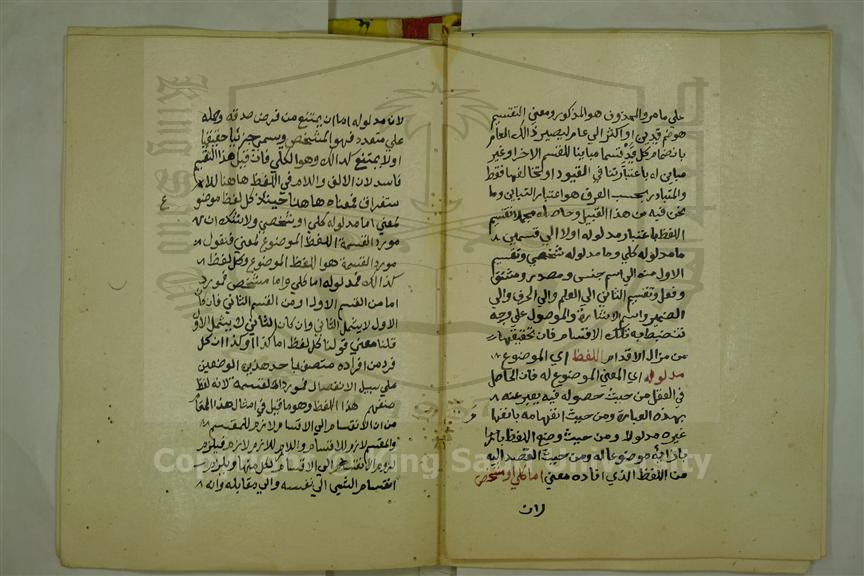 على ما مر والمحذوف هو المذكور ومعنى التقسيم
هو ضم قيدين او اكثر الى عام ليصير ذالك العام
بانضمام كل قيد قسما مباينا للقسم الاخر او غير
مباين له باعتبار تنافي القيود او تخالفها فقط
والمتبادر بحسب العرف هو اعتبار التباين وما
نحن فيه من هذا القبيل وحاصله مجملا تقسيم
اللفظ باعتبار مدلوله اولا الى قسمين
ما مدلوله كلي وما مدلوله شخصي وتقسيم
الاول منه الى اسم جنس ومصدر ومشتق
وفعل وتقسيم الثاني الى العلم والى الحرف والى
الضمير واسم الاشارة والموصول على وجه
تنضبط به تلك الاقسام فان تحقيقها
من مزال الاقدام اللفظ اي الموضوع
مدلوله اي المعنى الموضوع له فان الحاصل
في العقل من حيث حصوله فيه يعبر عنه
بهذه العبارة ومن حيث انفهامه بانفهام
غيره مدلولا ومن حيث وضع اللفظ بازا
بازائه موضوعا له ومن حيث القصد اليه
من اللفظ الذي افاده معنى اما كلي او شخص
لان
لان مدلوله اما ان يمتنع من فرض صدقه وحمله
على متعدد فهو المشخص وسمى جزئيا حقيقيا
او لا يمتنع كذالك وهو الكلي فان قيل هذا التقسيم
فاسد لان الالف واللام في اللفظ هاهنا للاس
ستغراق فمعناه هاهنا حينئذ كل لفظ موضوع
لمعنى اما مدلوله كلي او شخصي ولا شك ان
مورد القسمة اللفظ الموضوع لمعنى فنقول
مورد القسمة هو اللفظ الموضوع وكل لفظ
كذالك فمدلوله اما كلي واما مشخص فمورد
اما من القسم الاول او من القسم الثاني فان كان
الاول لا يشمل الثاني وان كان الثاني لا يشمل الاول
قلنا معنى قولنا كل لفظ اما كذا او كذا ان كل
فرد من افراده متصف باحد هذين الوصفين
على سبيل الانفصال فمورد القسمة لانه لفظ
هذا اللفظ وهو ما قيل في امثال هذا المقام
من ان الانقسام الى الاقسام لازم للمقسم
والمقسم لازم للاقسام واللازم للازم لازم فيلزم
لزوم الانقسام الى الاقسام للاقسام ويلزم
انقسام الشئ الى نفسه والى مقابله وانه
Copyright © King Saud University